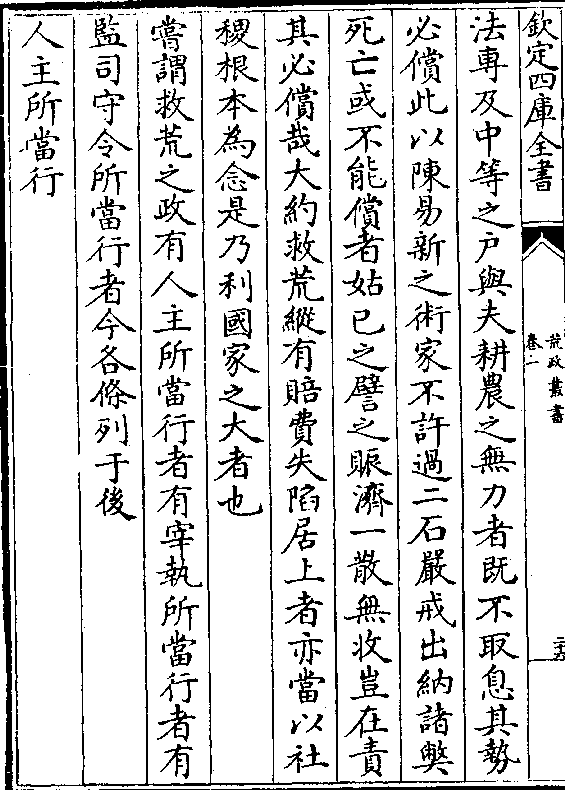 欽定四庫全書
荒政叢書
卷一
二十六
法専及中等之戸與夫耕農之無力者既不取息其勢
必償此以陳易新之術家不許過二石嚴戒出納諸弊
死亡或不能償者姑已之譬之賑濟一散無收豈在責
其必償哉大約救荒縱有賠費失陷居上者亦當以社
稷根本為念是乃利國家之大者也
嘗謂救荒之政有人主所當行者有宰執所當行者有
監司守令所當行者今各條列于後
人主所當行